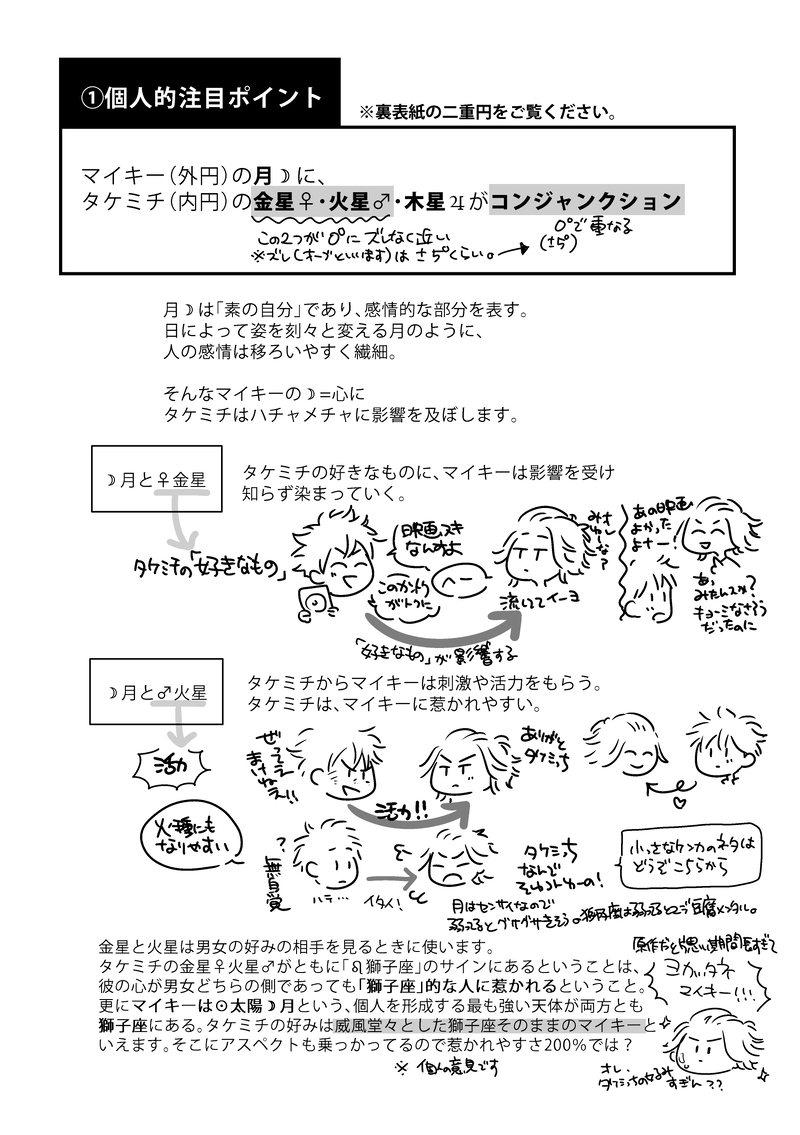 ①個人的注目ポイント
※裏表紙の二重円をご覧ください。
マイキー（外円）の月☽に、
タケミチ（内円）の金星♀・火星♂・木星♃がコンジャンクション
この2つが0°にズレなく近い
※ズレ(オーブといいます)は±5°くらい。
0°で重なる
(±5°)
月☽は「素の自分」であり、感情的な部分を表す。
日によって姿を刻々と変える月のように、
人の感情は移ろいやすく繊細。
そんなマイキーの☽=心に
タケミチはハチャメチャに影響を及ぼします。
☽月と♀金星
タケミチの好きなものに、マイキーは影響を受け
知らず染まっていく。
タケミチの「好きなもの」
映画スキ
なんすよ
このカットの
がトクに
へー
流いてイーヨ
「好きなもの」が影響する
あの映画
よかった
よナー!
あっ
みたんスか?
キョーミなさそう
だったのに
☽月と♂火星
タケミチからマイキーは刺激や活力をもらう。
タケミチは、マイキーに惹かれやすい。
活力
火種にも
なりやすい
ぜってえ
まけねえ!!
活力!!
ありがと
タケミっち
?
無自覚
イタイ!
タケミっち
なんで
そんなことゆーの!
小さなケンカのネタは
どうぞこちらから
月はセンサイなので
弱ってるとグサグサきそう。獅子座は弱ってるとマジ豆腐メンタル。
原作だと闇い期間長すぎて
金星と火星は男女の好みの相手を見るときに使います。
タケミチの金星♀火星♂がともに「♌獅子座」のサインにあるということは、
彼の心が男女どちらの側であっても「獅子座」的な人に惹かれるということ。
更にマイキーは☉太陽☽月という、個人を形成する最も強い天体が両方とも
獅子座にある。タケミチの好みは威風堂々とした獅子座そのままのマイキーと
いえます。そこにアスペクトも乗っかってるので惹かれやすさ200%では？
※ 個人の意見です
マイキー!!!
オレ、
タケミっちの好み
すぎん??